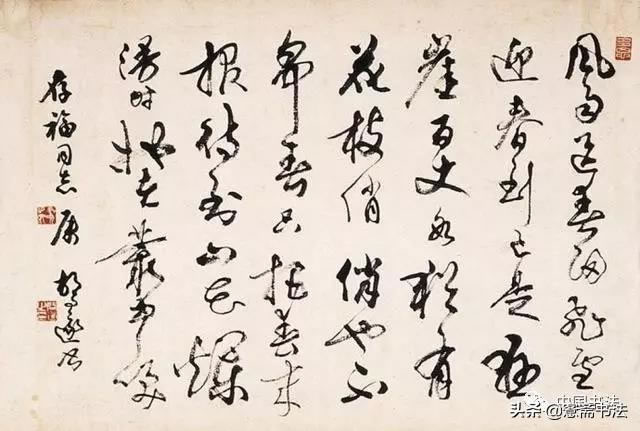 风雨送春归飞雪
迎春到已是悬
崖百丈冰犹有
花枝俏俏也不
争春只把春来
报待到山花烂
漫时她在丛中笑
存福同志属
胡
中国书法
头条@慧斋书法